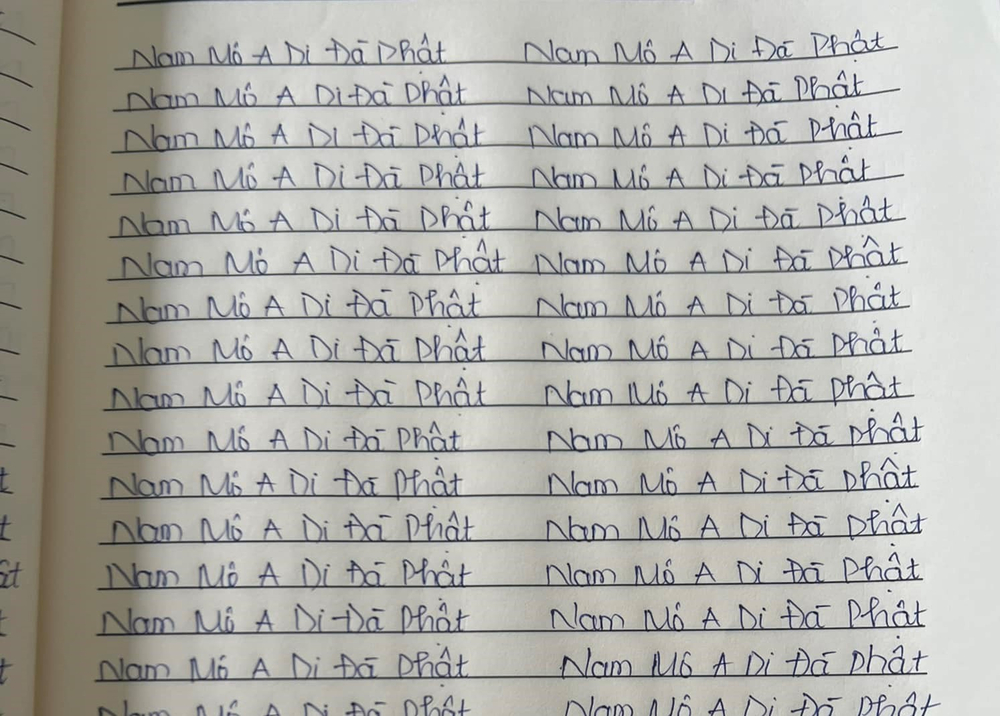 Nam Mô A Di Đà Phật Nam Mô A Di Đà Phật
Nam Mô A Di Đà Phật Nam Mô A Di Đà Phật
Nam Mô A Di Đà Phật Nam Mô A Di Đà Phật
Nam Mô A Di Đà Phật Nam Mô A Di Đà Phật
Nam Mô A Di Đà Phật Nam Mô A Di Đà Phật
Nam Mô A Di Đà Phật Nam Mô A Di Đà Phật
Nam Mô A Di Đà Phật Nam Mô A Di Đà Phật
Nam Mô A Di Đà Phật Nam Mô A Di Đà Phật
Nam Mô A Di Đà Phật Nam Mô A Di Đà Phật
Nam Mô A Di Đà Phật Nam Mô A Di Đà Phật
Nam Mô A Di Đà Phật Nam Mô A Di Đà Phật
Nam Mô A Di Đà Phật Nam Mô A Di Đà Phật
Nam Mô A Di Đà Phật Nam Mô A Di Đà Phật
Nam Mô A Di Đà Phật Nam Mô A Di Đà Phật
Nam Mô A Di Đà Phật Nam Mô A Di Đà Phật
Nam Mô A Di Đà Phật Nam Mô A Di Đà Phật